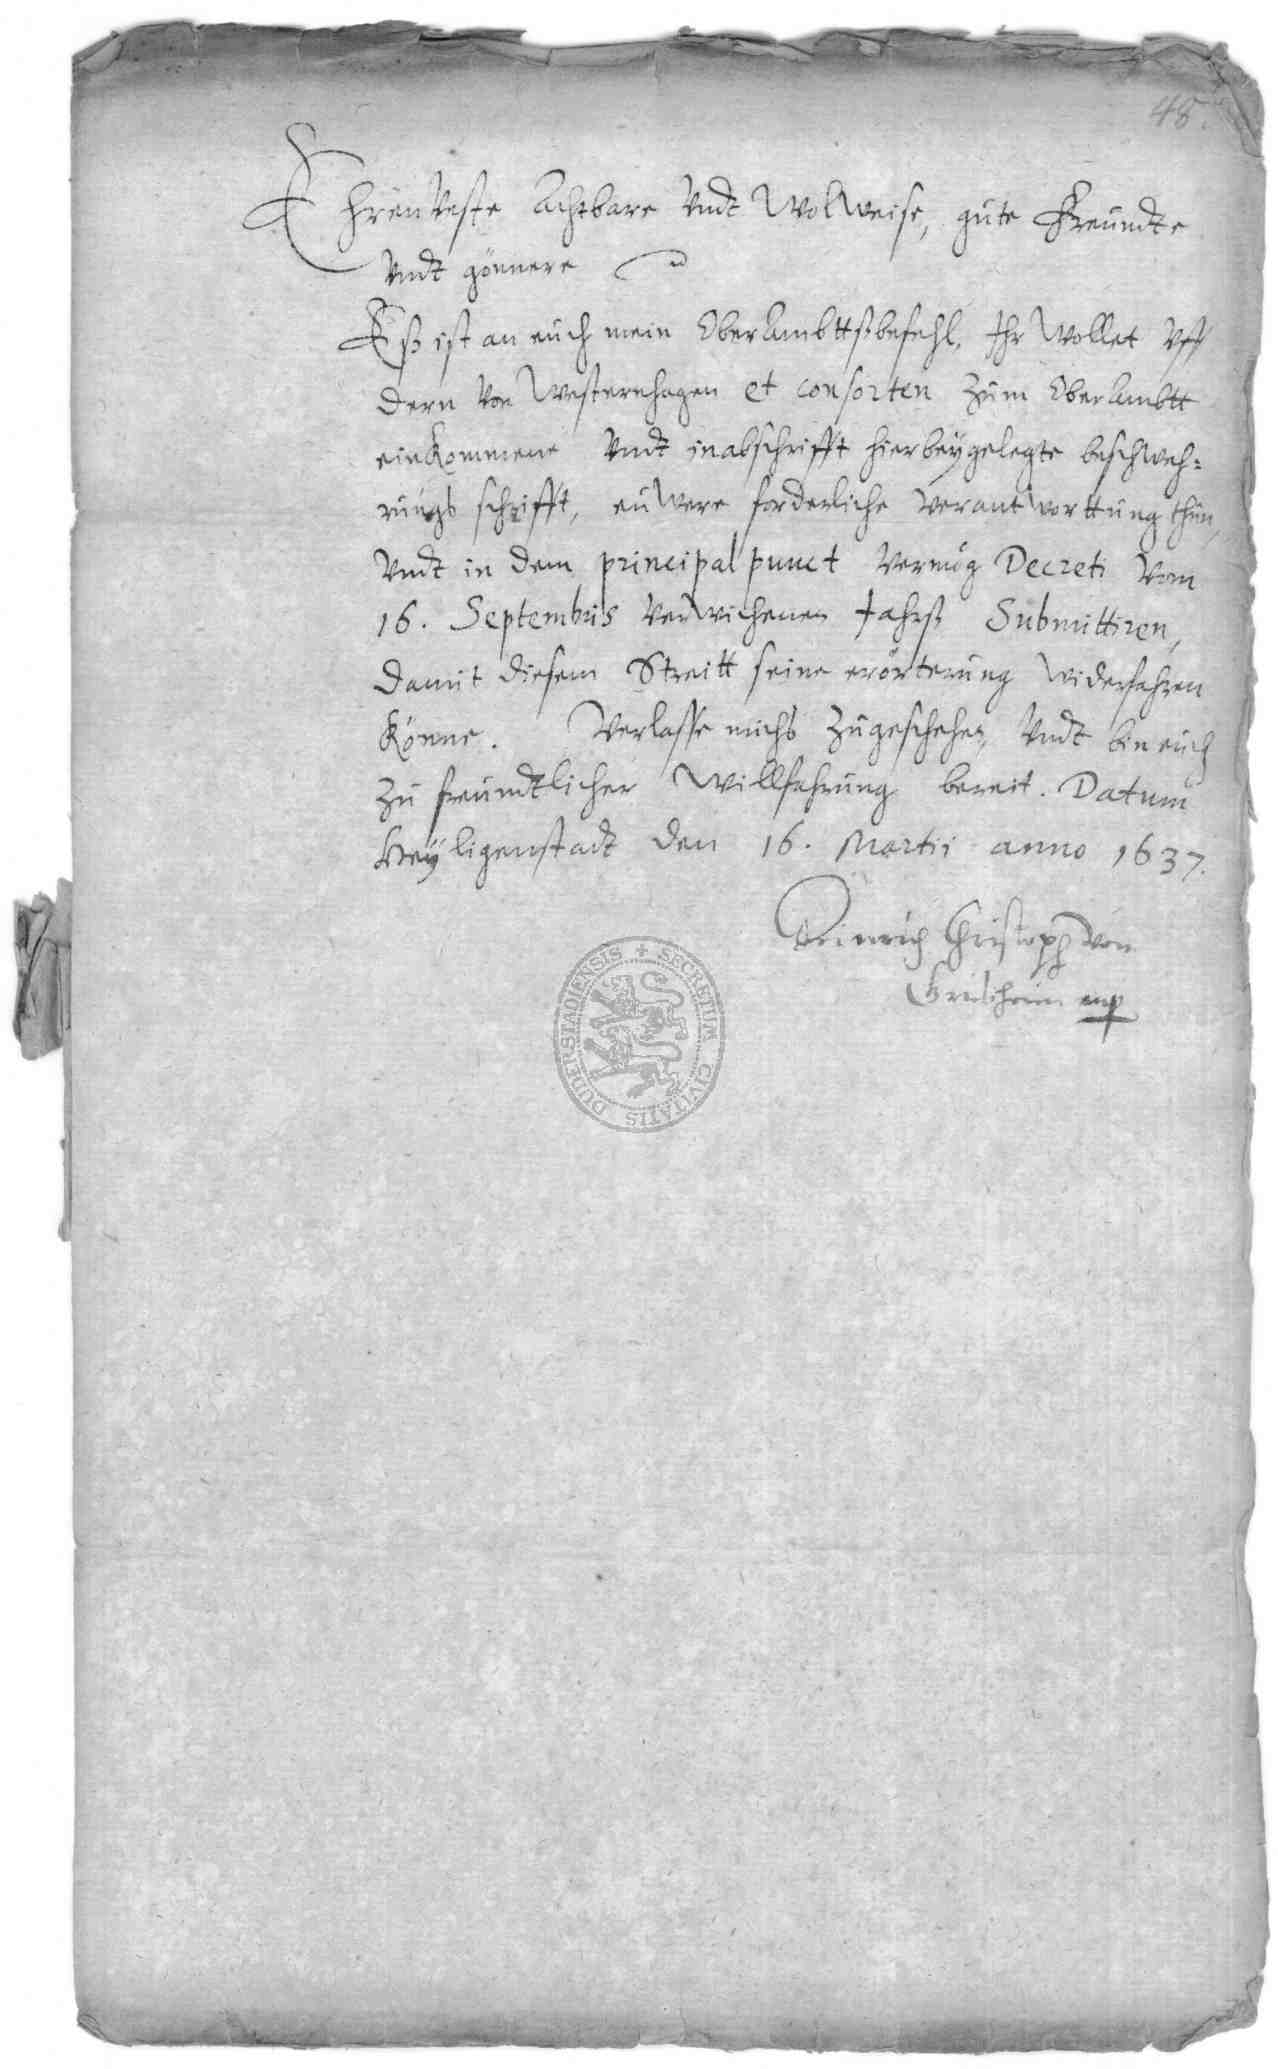 48.
EhrenVeste Achtbare Vndt WolWeise, gute Freundte
Vndt gönnere
Eß ist an euch mein OberAmbttßbefehl, Ihr Wollet Vff
dern Von Westernhagen et consorten zum OberAmbtt
einkommene Vndt inabschrifft hierbeygelegte beschweh=
rungs schrifft, euWere förderliche VerantWorttung thun,
Vndt in dem principal punct Vermög Decreti Vom
16. Septembris VerWichenen Jahrß Submittiren,
damit diesem Streitt seine erörterung Widerfahren
könne. Verlasse michs zugeschehen, Vndt bin euch
zu freundtlicher Willfahrung bereit. Datum
Heyligenstadt den 16. Martii anno 1637.
Heinrich Christoph von
Griesheim mp
SECRETUM CIVITATIS DUDERSTADIENSIS